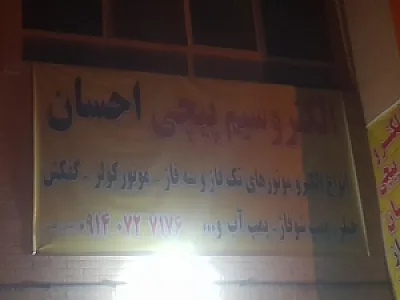 الکترو سیم پیچی احسان
انواع الکترو موتورهای تک فاز و سه فاز - موتور کولر - کفکش
پمپ شوفاژ - پمپ آب و... ۰۹۱۴ ۰۷۲ ۷۱۷۶